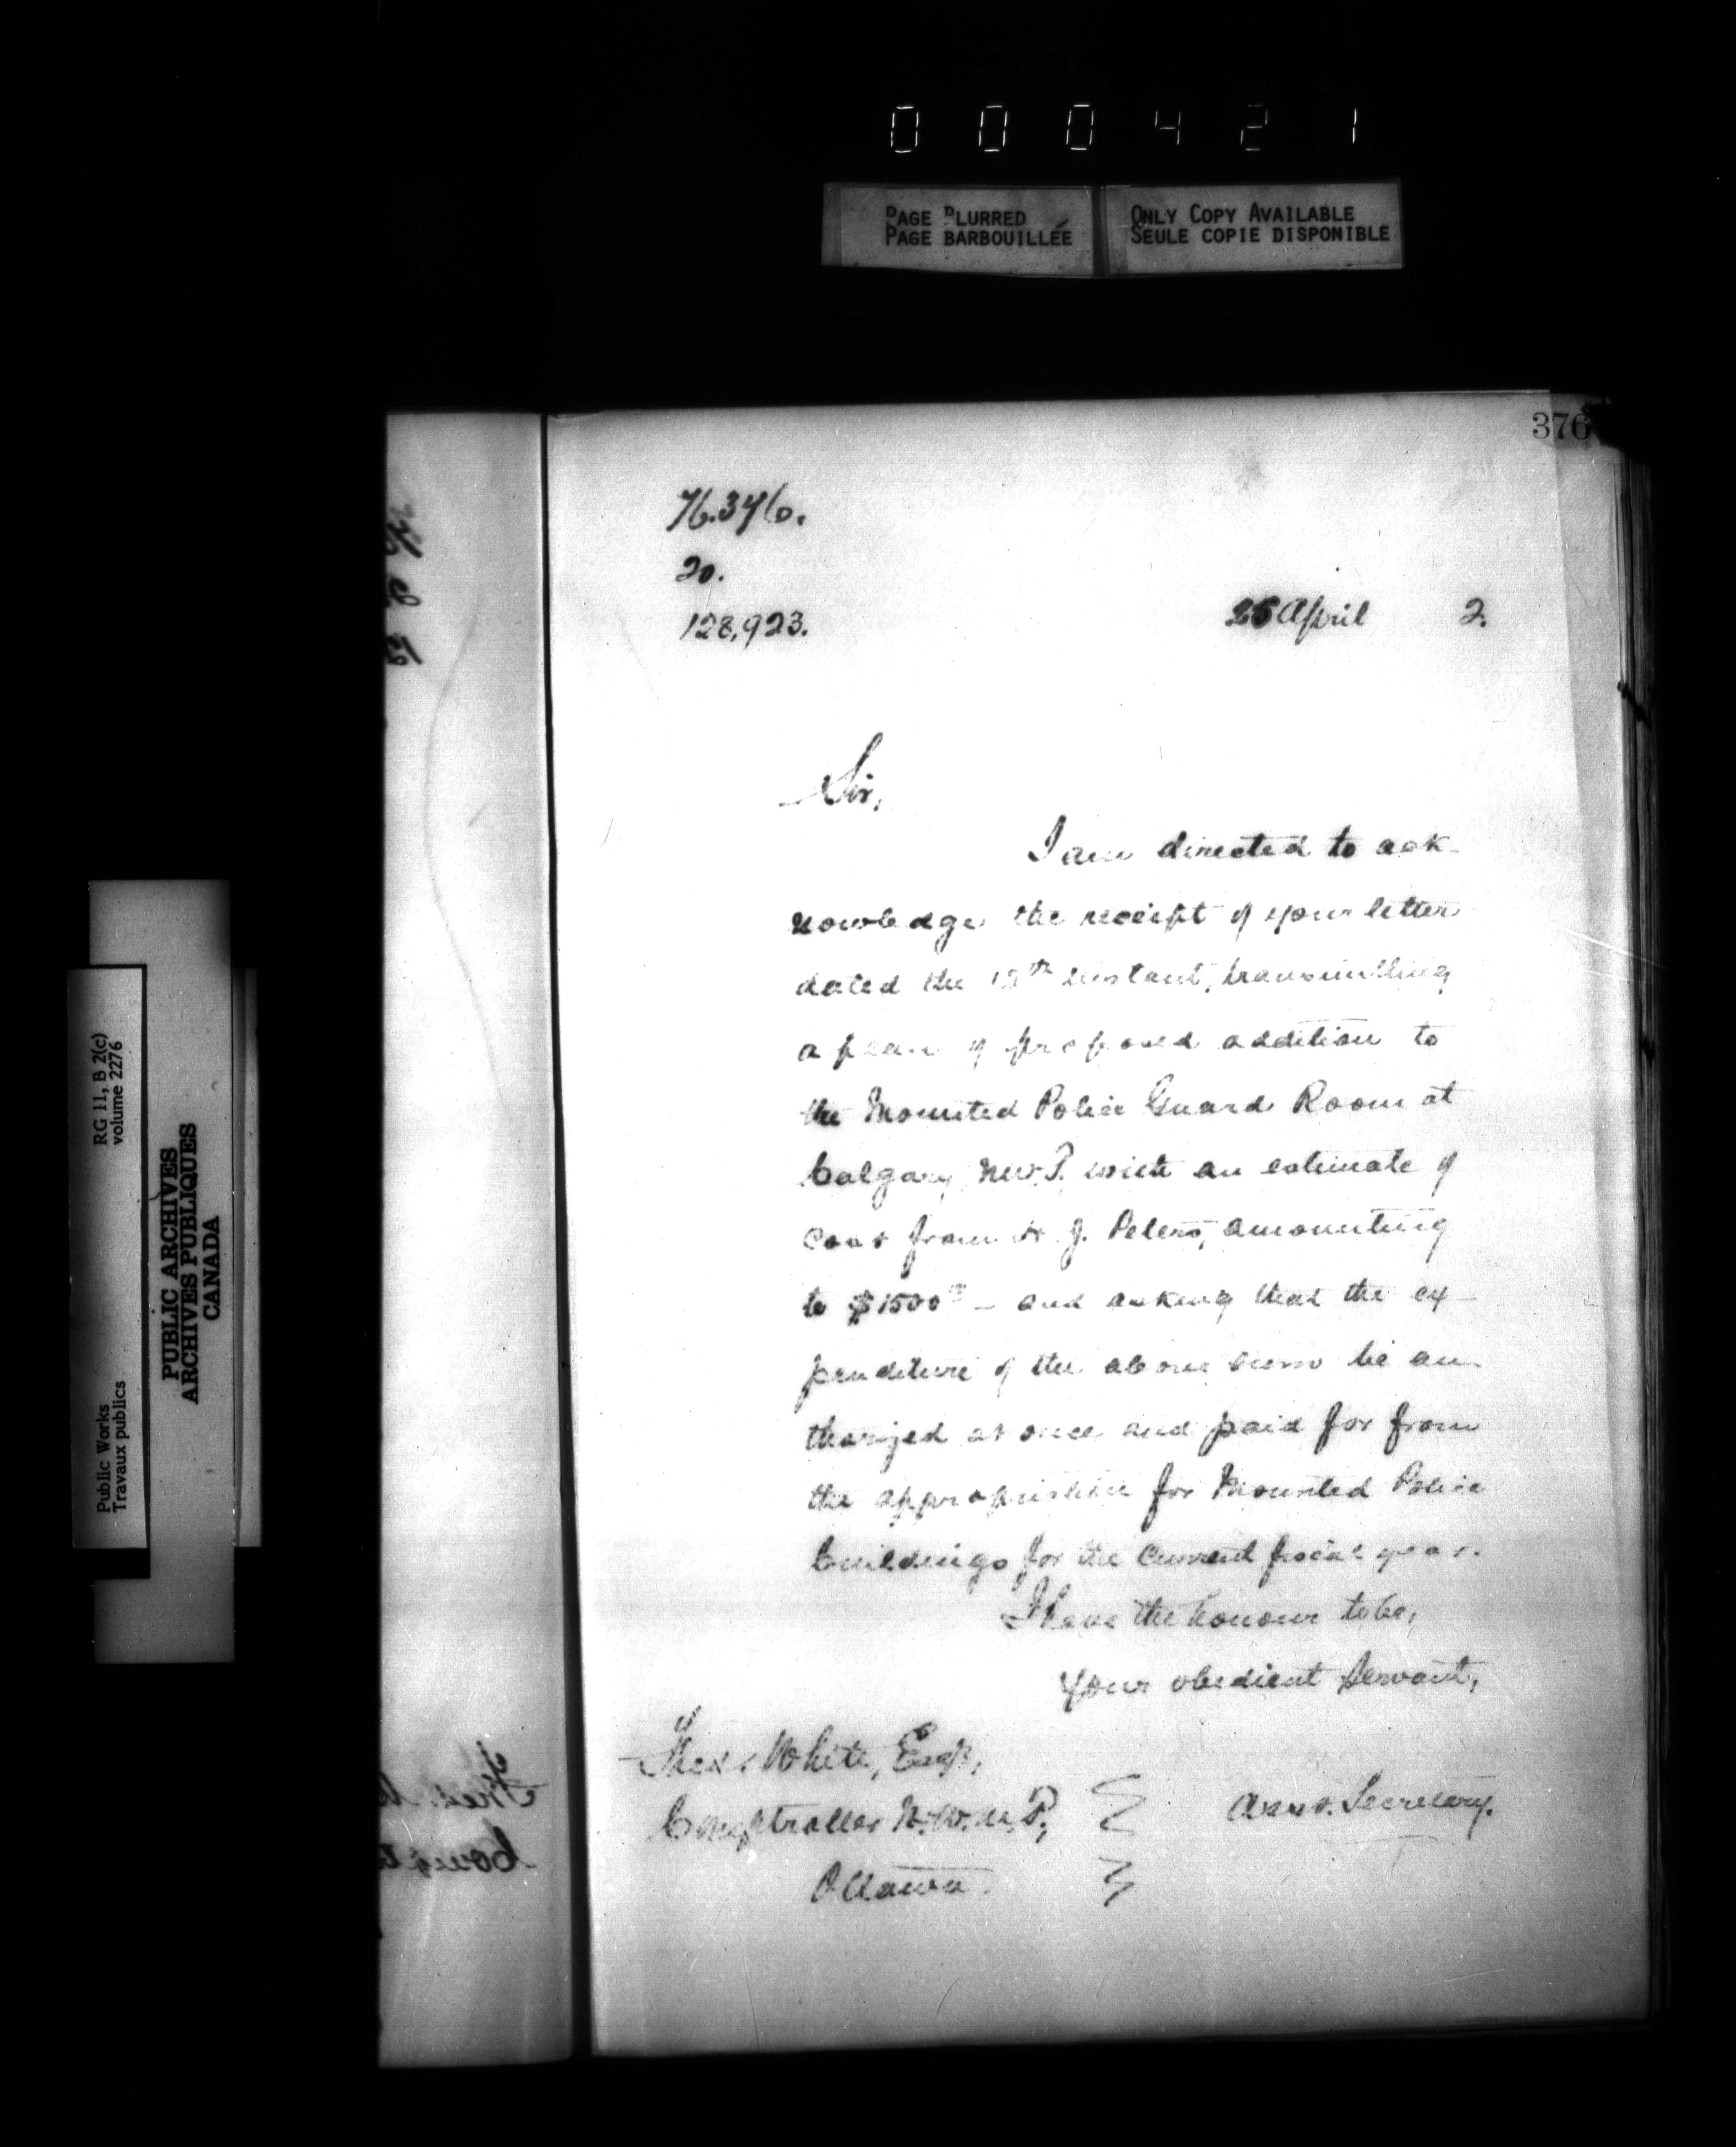 000421
PAGE BLURRED
PAGE BARBOUILLÉE
ONLY COPY AVAILABLE
SEULE COPIE DISPONIBLE
376
76.346.
20.
128,923.
25 April 2.
Sir,
I am directed to ack-
nowledge the receipt of your letter
dated the 12th instant, transmitting
a plan of proposed addition to
the Mounted Police Guard Room at
Calgary N.W.T. with an estimate of
cost from J. Peters, amounting
to $1500 - and asking that the ex-
penditure of the above sum be au-
thorized at once and paid for from
the appropriation for Mounted Police
buildings for the current fiscal year.
I have the honour to be,
Your obedient Servant,
Fred. White, Esq.,
Comptroller N.W.M.P.,
Ottawa.
Asst. Secretary.
RG 11, B 2(c)
volume 2276
Public Works
Travaux publics
PUBLIC ARCHIVES
ARCHIVES PUBLIQUES
CANADA